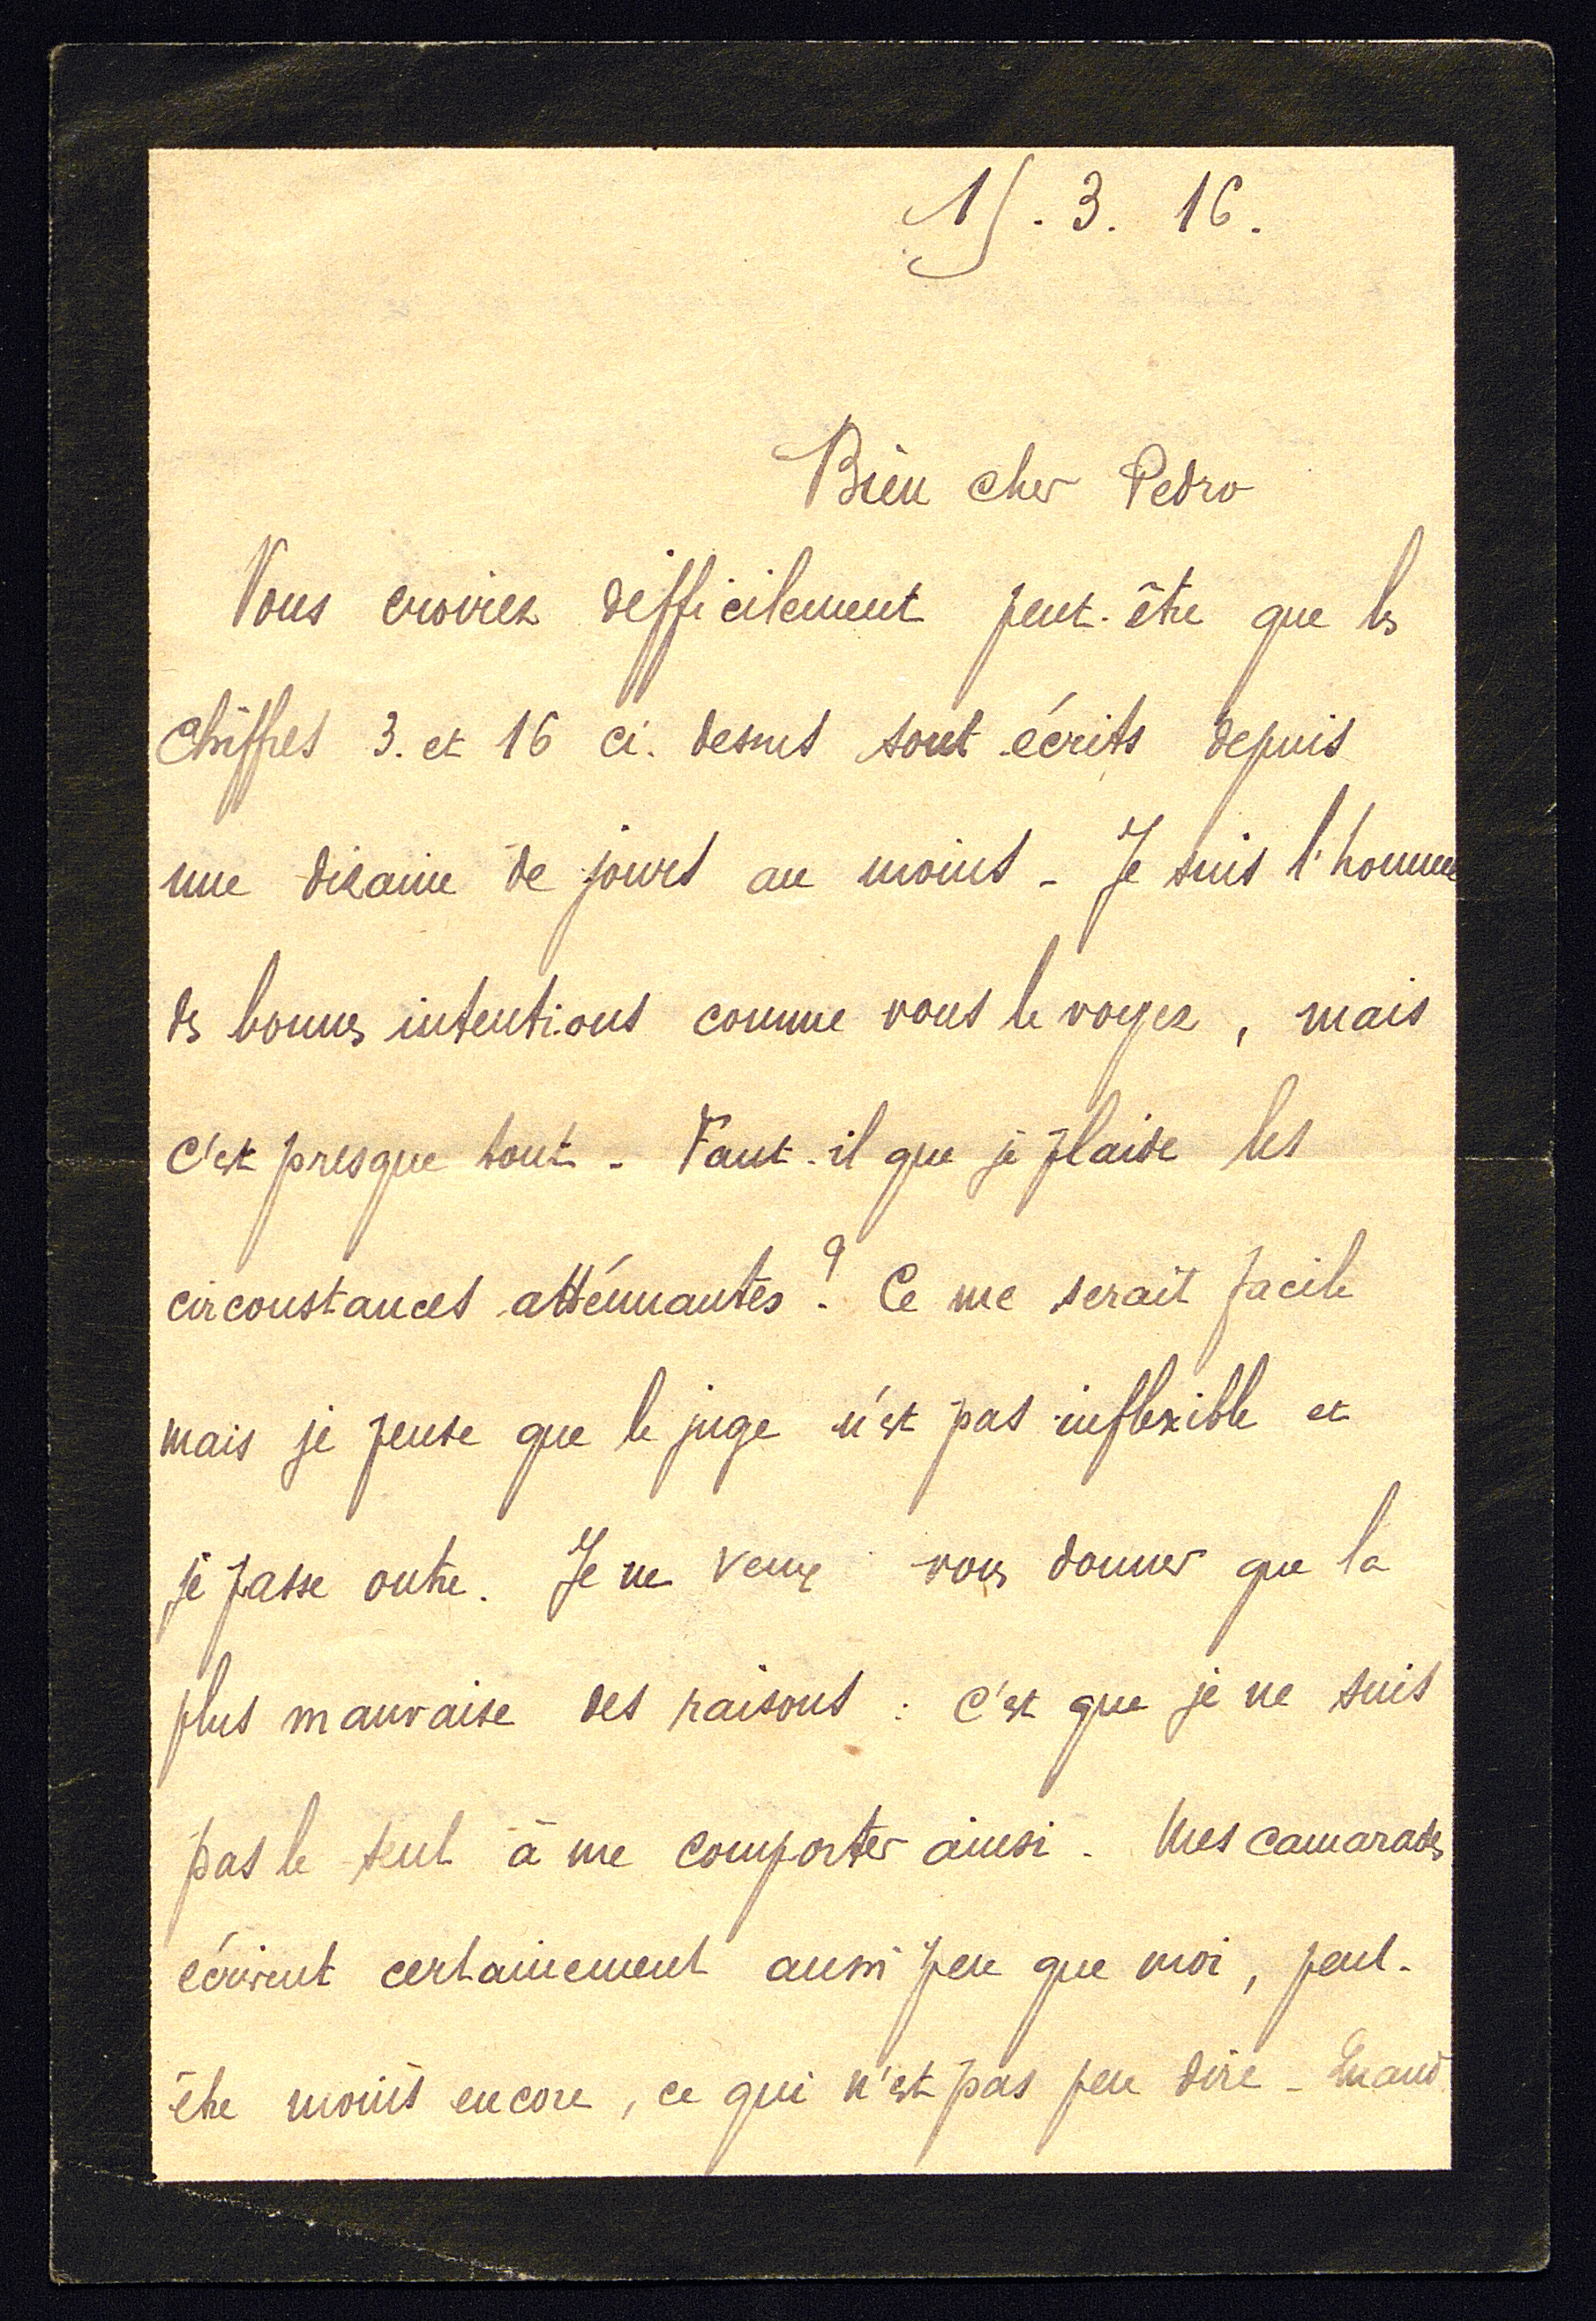 15. 3. 16.
Bien cher Pedro
Vous croirez difficilement peut-être que les
chiffres 3. et 16 ci-dessus sont écrits depuis
une dizaine de jours au moins - Je suis l'homme
des bonnes intentions comme vous le voyez, mais
c'est presque tout - Faut-il que je plaide les
circonstances atténuantes ? Ce me serait facile
mais je pense que le juge n'est pas inflexible et
je passe outre. Je ne veux vous donner que la
plus mauvaise des raisons : c'est que je ne suis
pas le seul à me comporter ainsi. Mes camarades
écrivent certainement aussi peu que moi, peut-
être moins encore, ce qui n'est pas peu dire - Quand